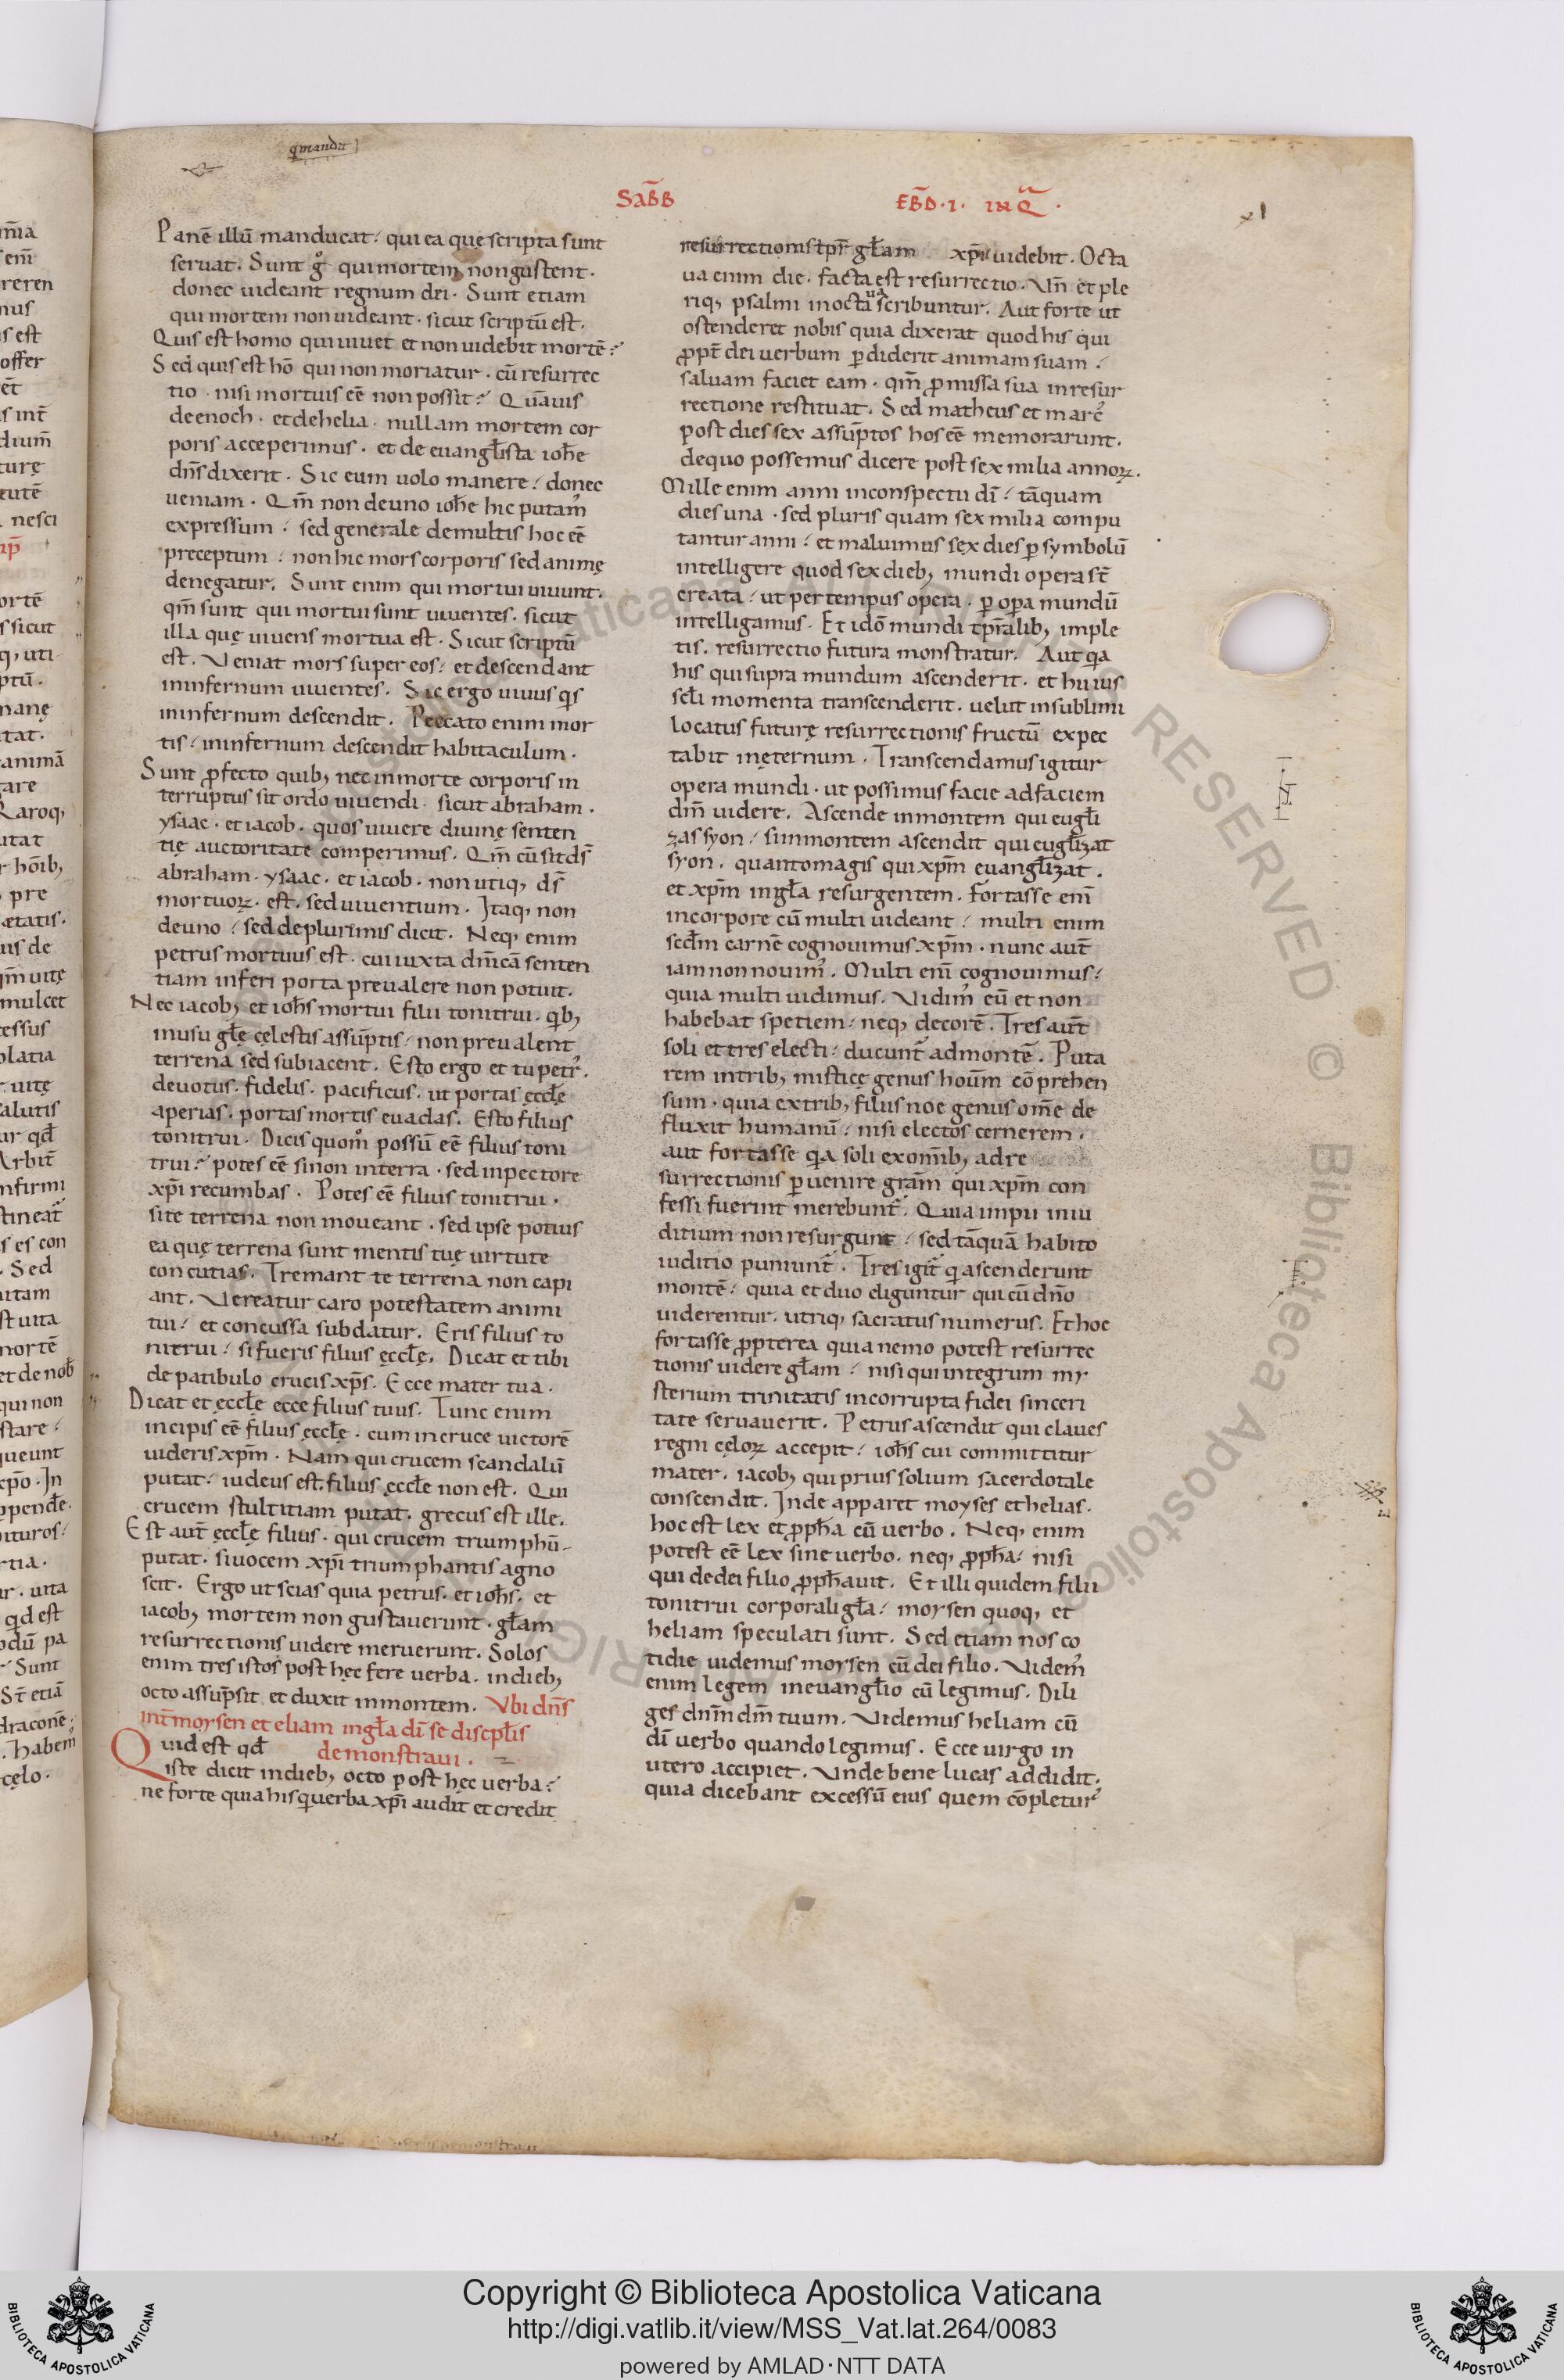 qmandu
SaB̄B
EB̄D·I· IN Q̄·
xl
Panē illū manducat: qui ea quę scripta sunt
seruat. Sunt g° qui mortem non gustent.
donec uideant regnum dei. Sunt etiam
qui mortem non uideant. sicut scriptū est.
Quis est homo qui uiuet et non uidebit mortē?
Sed quis est hō qui non moriatur. cū resurrec
tio nisi mortuis eē non possit? Quāuis
de enoch. et de helia. nullam mortem cor
poris acceperimus. et de euangl̄ista ioh̄e
dn̄s dixerit. Sic eum uolo manere: donec
ueniam. Qm̄ non de uno ioh̄e hic putam᾽
expressum: sed generale de multis hoc eē
preceptum: non hic mors corporis sed animę
denegatur. Sunt enim qui mortui uiuunt.
qm̄ sunt qui mortui sunt uiuentes. sicut
illa quę uiuens mortua est. Sicut scriptū
est. Veniat mors super eos: et descendant
in infernum uiuentes. Sic ergo uiuus qis
in infernum descendit. Peccato enim mor
tis: in infernum descendit habitaculum.
Sunt ꝓfecto quib; nec in morte corporis in
terruptus sit ordo uiuendi. sicut abraham.
ysaac. et iacob. quos uiuere diuinę senten
tię auctoritate comperimus. Qm̄ cū sit ds̄
abraham. ysaac. et iacob. non utiq; ds̄
mortuoꝝ. est. sed uiuentium. Itaq; non
de uno: sed de plurimis dicit. Neq; enim
petrus mortuus est. cui iuxta dn̄icā senten
tiam inferi porta preualere non potuit.
Nec iacob; et ioh̄s mortui filii tonitrui. qib;
in usu gl̄ę cęlestis assūptis: non preualent
terrena sed subiacent. Esto ergo et tu petr᾽.
deuotus. fidelis. pacificus. ut portas ęccl̄ę
aperias. portas mortis euadas. Esto filius
tonitrui. Dicis quom° possū eē filius toni
trui? potes eē si non in terra. sed in pectore
xp̄i recumbas. Potes eē filius tonitrui.
si te terrena non moueant. sed ipse potius
ea quę terrena sunt mentis tuę uirtute
concutias. Tremant te terrena non capi
ant. Vereatur caro potestatem animi
tui: et concussa subdatur. Eris filius to
nitrui: si fueris filius ęccl̄ę. Dicat et tibi
de patibulo crucis xp̄s. Ecce mater tua.
Dicat et ęccl̄ę ecce filius tuus. Tunc enim
incipis eē filius ęccl̄ę. cum in cruce uictorē
uideris xp̄m. Nam qui crucem scandalū
putat: iudeus est. filius ęccl̄e non est. Qui
crucem stultitiam putat. grecus est ille.
Est aut̄ ęccl̄ę filius. qui crucem triumphū-
putat. si uocem xp̄i triumphantis agno
scit. Ergo ut scias quia petrus. et ioh̄s. et
iacob; mortem non gustauerunt. gl̄am
resurrectionis uidere meruerunt. Solos
enim tres istos post hęc fere uerba. in dieb;
octo assūpsit et duxit in montem. Vbi dn̄s
int̄ moysen et eliam in gl̄a dī se discpl̄is
demonstraui.
Quid est qd̄
iste dicit in dieb; octo post hęc uerba?
ne forte quia his qi uerba xp̄i audit et credit
resurrectionis tp̄r gl̄am xp̄i uidebit. Octa
ua enim die. facta est resurrectio. Vn̄ et ple
riq; psalmi in octaua scribuntur. Aut forte ut
ostenderet nobis quia dixerat quod his qui
ꝓpt̄ dei uerbum ꝑdiderit animam suam:
saluam faciet eam. qm̄ ꝓmissa sua in resur
rectione restituat. Sed matheus et marc᾽
post dies sex assūptos hos eē memorarunt.
de quo possemus dicere post sex milia annoꝝ.
Mille enim anni in conspectu dī: tāquam
dies una. sed pluris quam sex milia compu
tantur anni: et maluimus sex dies ꝑ symbolū
intelligere quod sex dieb; mundi opera st̄
creata: ut per tempus opera. ꝑ oꝑa mundū
intelligamus. Et idō mundi tp̄ralib; imple
tis. resurrectio futura monstratur. Aut qia
his qui supra mundum ascenderit. et huius
scl̄i momenta transcenderit. uelut in sublimi
locatus futurę resurrectionis fructū expec
tabit in ęternum. Transcendamus igitur
opera mundi. ut possimus facie ad faciem
dm̄ uidere. Ascende in montem qui eugl̄i
zas syon: si in montem ascendit qui eugl̄izat
syon. quanto magis qui xp̄m euangl̄izat.
et xp̄m in gl̄a resurgentem. Fortasse eni̅
in corpore cū multi uideant: multi enim
secd̄m carnē cognouimus xp̄m. nunc aut̄
iam non nouim᾽. Multi eni̅ cognouimus:
quia multi uidimus. Vidim᾽ eū et non
habebat spetiem: neq; decorē. Tres aut̄
soli et tres electi: ducunt᾽ ad montē. Puta
rem in trib; misticę genus houm̄ cōprehen
sum. quia ex trib; filiis noe genus om̄e de
fluxit humanū: nisi electos cernerem.
aut fortasse qia soli ex om̄ib; ad re
surrectionis ꝑuenire gr̄am qui xp̄m con
fessi fuerint merebunt᾽. Quia impii in iu
ditium non resurgunt: sed tāquā habito
iuditio puniunt᾽. Tres igit᾽ qi ascenderunt
montē: quia et duo eliguntur qui cū dn̄o
uiderentur. utriq; sacratus numerus. Et hoc
fortasse ꝓpterea quia nemo potest resurrec
tionis uidere gl̄am: nisi qui integrum my
sterium trinitatis incorrupta fidei sinceri
tate seruauerit. Petrus ascendit qui claues
regni cęloꝝ accepit: ioh̄s cui committitur
mater. iacob; qui prius solium sacerdotale
conscendit. Inde apparet moyses et helias.
hoc est lex et ꝓph̄a cū uerbo. Neq; enim
potest eē lex sine uerbo. neq; ꝓph̄a: nisi
qui de dei filio ꝓph̄auit. Et illi quidem filii
tonitrui corporali gl̄a: moysen quoq; et
heliam speculati sunt. Sed etiam nos co
tidie uidemus moysen cū dei filio. Videm᾽
enim legem in euangl̄io cū legimus. Dili
ges dn̄m dm̄ tuum. Videmus heliam cū
dī uerbo quando legimus. Ecce uirgo in
utero accipiet. Vnde bene lucas addidit.
quia dicebant excessū eius quem cōpletur᾽
Copyright © Biblioteca Apostolica Vaticana
http://digi.vatlib.it/view/MSS_Vat.lat.264/0083
powered by AMLAD·NTT DATA